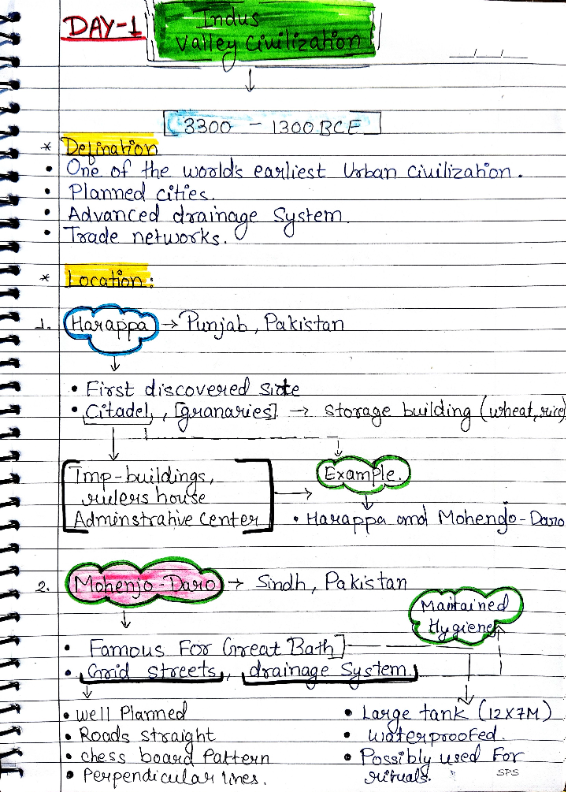 DAY-1
Indus
Valley Civilization
3300 - 1300 BCE
* Defination
• One of the world's earliest Urban Civilization.
• Planned cities.
• Advanced drainage System.
• Trade networks.
* Location:
1. Harappa → Punjab, Pakistan
• First discovered site
• Citadel, [granaries] → storage building (wheat, rice)
Imp-buildings,
rulers house
Adminstrative Center
→ Example.
• Harappa and Mohenjo-Daro
2. Mohenjo-Daro → Sindh, Pakistan
Maintained
Hygiene
• Famous For Great Bath]
• Grid streets, drainage System
• Well Planned
• Roads straight
• chess board Pattern
• Perpendicular lines.
• Large tank (12x7M)
• waterproofed.
• Possibly used For
rituals.
SPS